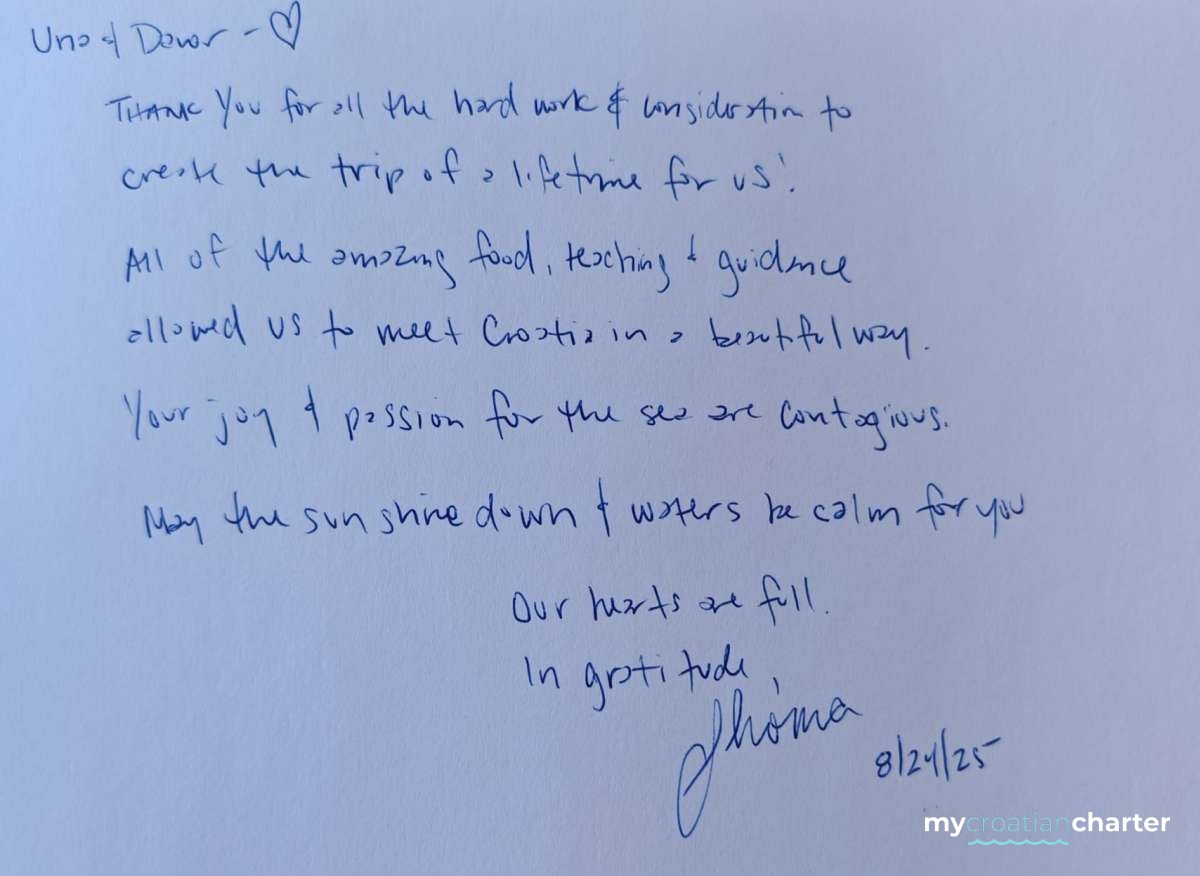 Una & Davor - ♡
THANK You for all the hard work & consideration to
create the trip of a lifetime for us!
All of the amazing food, teaching & guidance
allowed us to meet Croatia in a beautiful way.
Your joy & passion for the sea are contagious.
May the sun shine down & waters be calm for you
Our hearts are full.
In gratitude,
8/24/25
mycroatiancharter